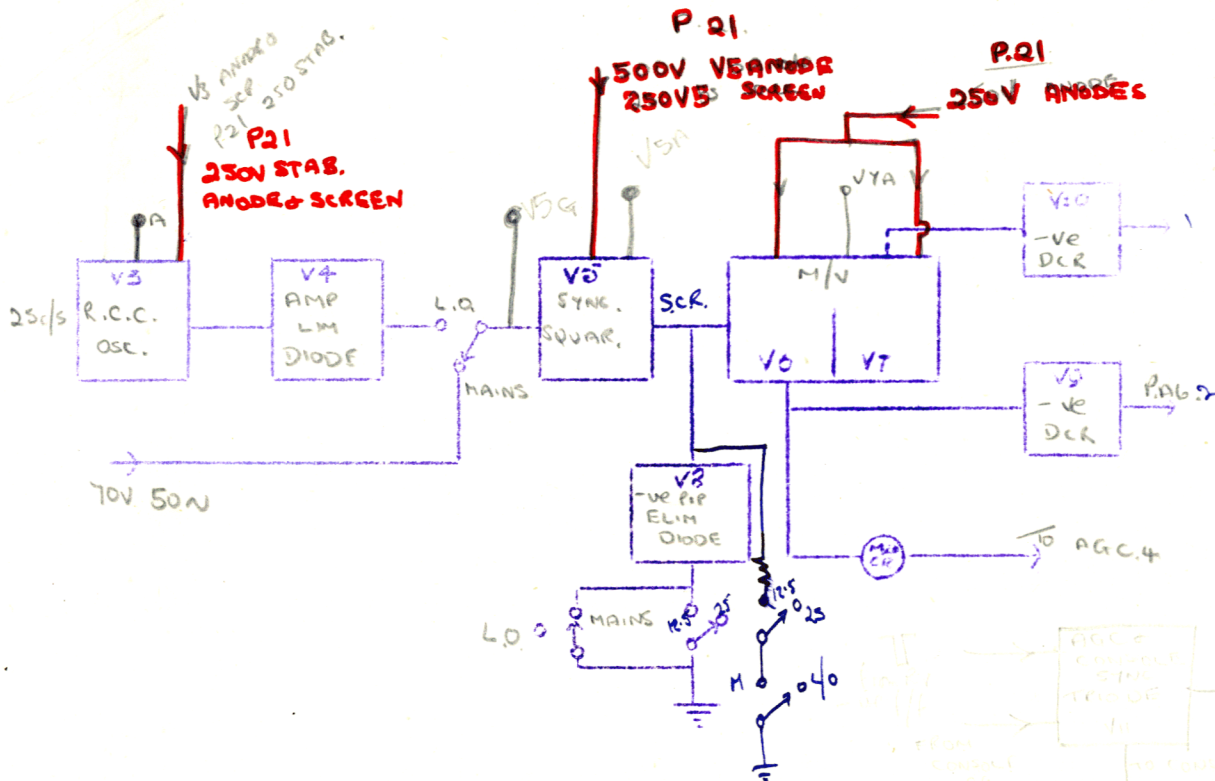 P.21
500V V5 ANODE
250 V5 SCREEN
P.21
250V ANODES
V3 ANODE &
SCR 250 STAB.
P21
P21
250V STAB.
ANODE & SCREEN
A
V5G
V5A
V7A
25c/s
V3
R.C.C.
OSC.
V4
AMP
LIM
DIODE
L.O.
MAINS
V5
SYNC.
SQUAR.
S.C.R.
M/V
V6
V7
V10
-ve
DCR
1
V9
-ve
DCR
P.AG.2
70V 50N
V8
-ve PIP
ELIM
DIODE
AGC.4
L.O.
MAINS
12.5
25
12.5
25
M
L/O